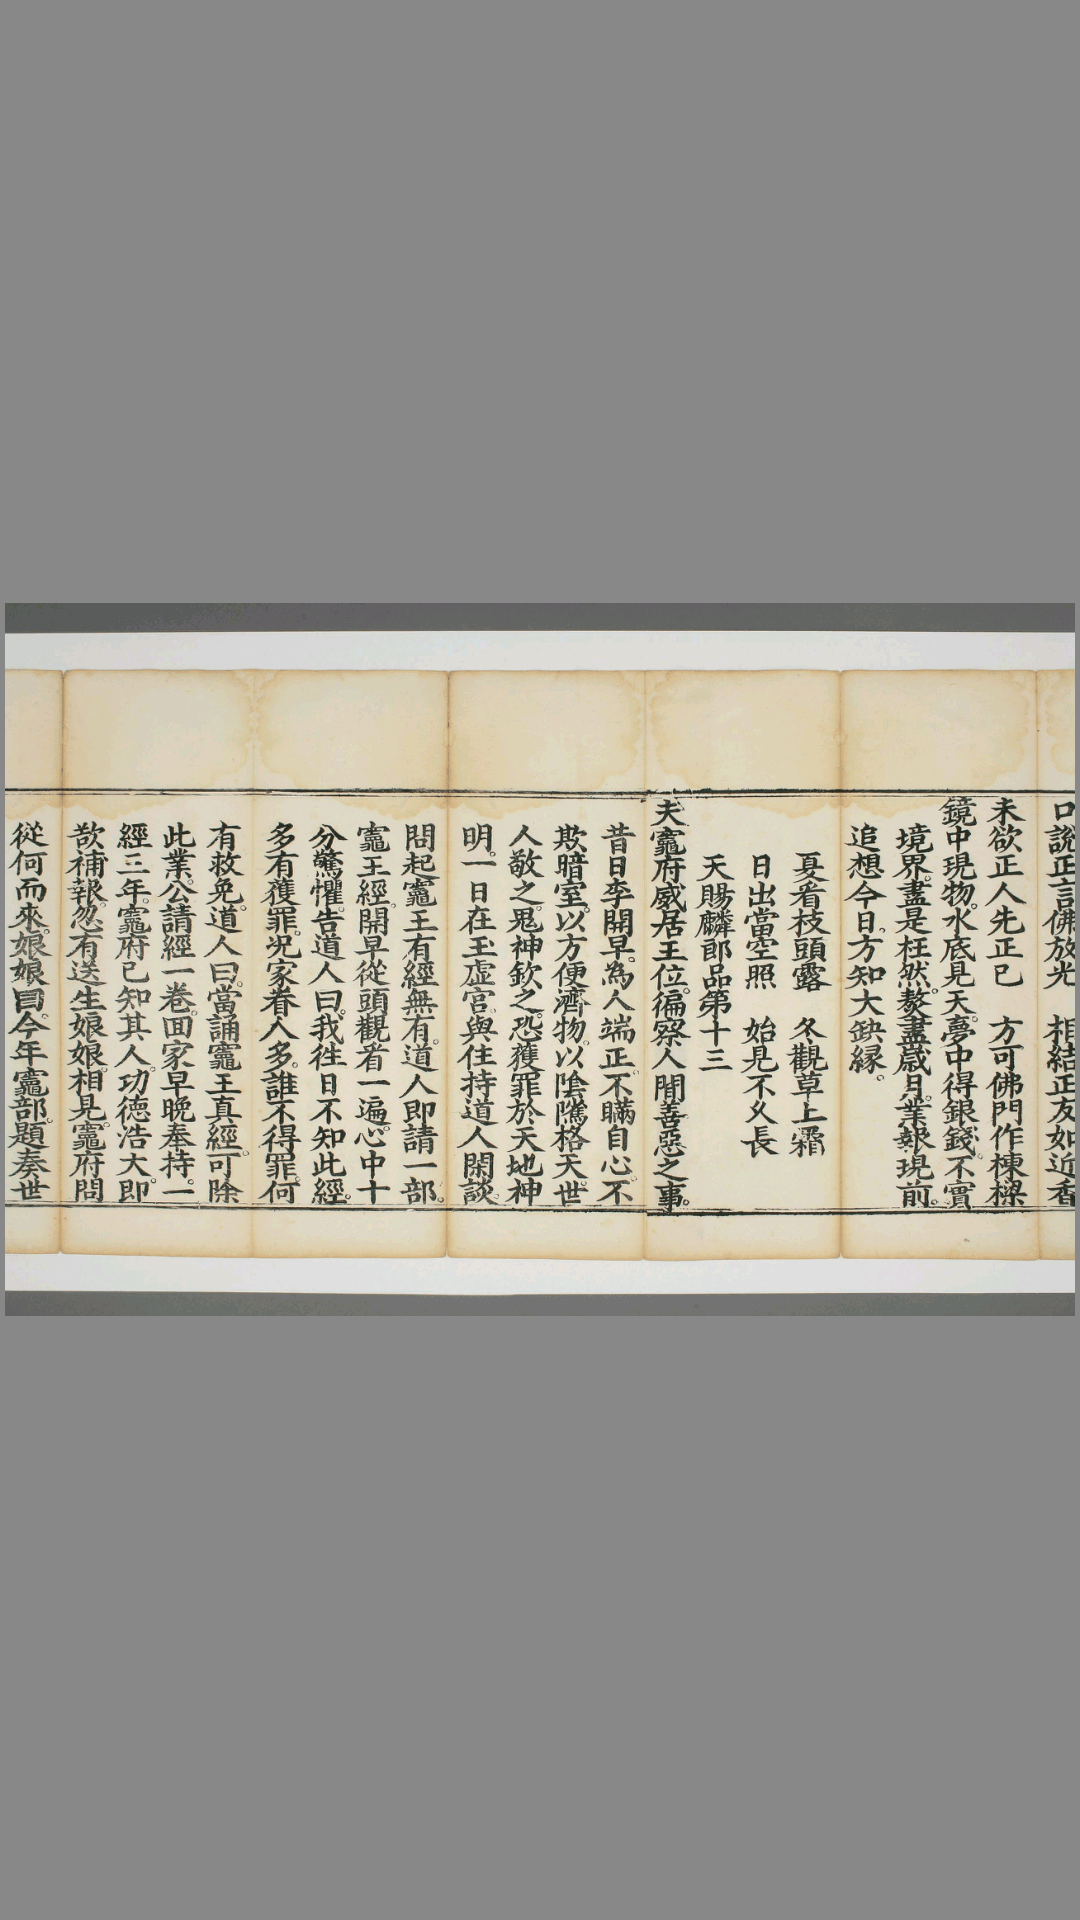 口說正言佛放光　相結正友如近香
未欲正人先正己　方可佛門作棟樑
鏡中現物。水底見天。夢中得銀錢。不實
境界。盡是枉然。熬盡歲月。業報現前。
追想今日。方知大缺縁。
夏看枝頭露　冬觀草上霜
日出當空照　始見不久長
天賜麟郎品第十三
夫竈府威居王位。徧察人間善惡之事。
昔日李開早。為人端正。不瞞自心。不
欺暗室。以方便濟物。以陰隲格天。世
人敬之。鬼神欽之。恐獲罪於天地神
明。一日在玉虛宮與住持道人閑談
問起竈王有經無有。道人即請一部。
竈王經。開早從頭觀看一遍。心中十
分驚懼。告道人曰。我徃日不知此經。
多有獲罪。况家眷人多。誰不得罪。何
有救免。道人曰。當誦竈王真經。可除
此業。公請經一卷。回家早晚奉持。一
經三年。竈府已知其人。功德浩大。即
欲補報。忽有送生娘娘。相見。竈府問
從何而來。娘娘曰。今年竈部。題奏世